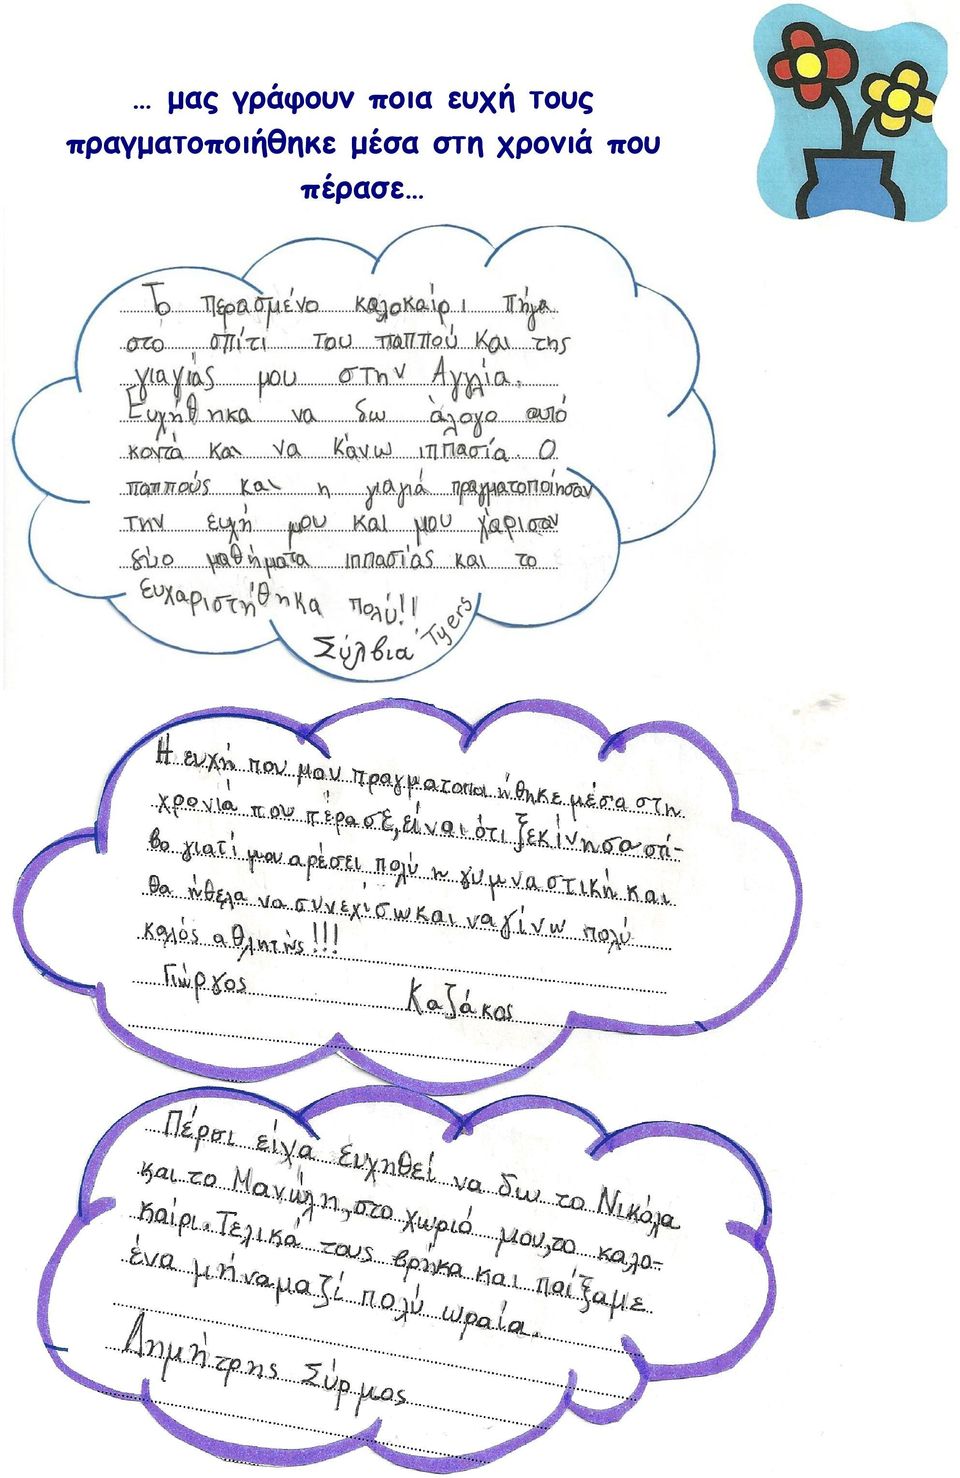 … μας γράφουν ποια ευχή τους
πραγματοποιήθηκε μέσα στη χρονιά που
πέρασε…
Το περασμένο καλοκαίρι πήγα
στο σπίτι του παππού και της
γιαγιάς μου στην Αγγλία.
Ευχήθηκα να δω άλογο από
κοντά και να κάνω ιππασία. Ο
παππούς και η γιαγιά πραγματοποίησαν
την ευχή μου και μου χάρισαν
δύο μαθήματα ιππασίας και το
ευχαριστήθηκα πολύ!!
Σύλβια Tyers
Η ευχή που μου πραγματοποιήθηκε μέσα στη
χρονιά που πέρασε, είναι ότι ξεκίνησα στί-
βο γιατί μου αρέσει πολύ η γυμναστική και
θα ήθελα να συνεχίσω και να γίνω πολύ
καλός αθλητής!!!
Γιώργος Καζάκος
Πέρσι είχα ευχηθεί να δω το Νικόλα
και το Μανώλη, στο χωριό μου, το καλο-
καίρι. Τελικά τους βρήκα και παίξαμε
ένα μήνα μαζί πολύ ωραία.
Δημήτρης Σύρμος